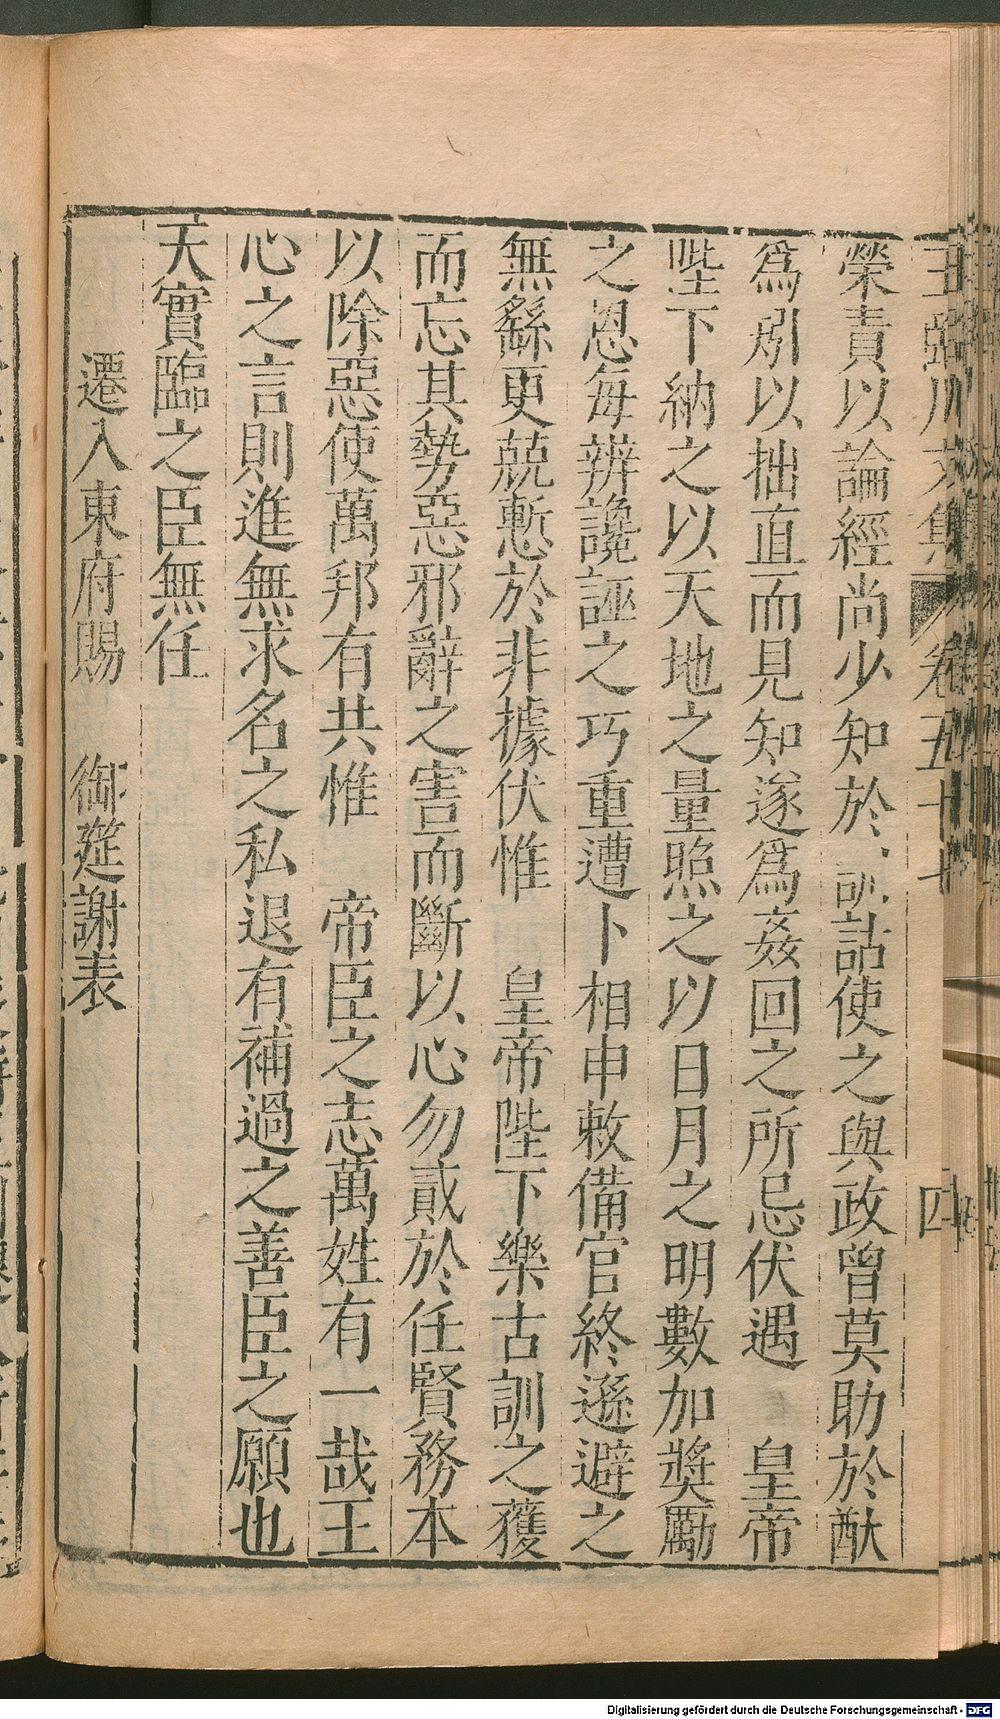 王臨川文集 卷五十七 四
榮責以論經尚少知於訓詁使之與政曾莫助於猷
爲引以拙直而見知遂爲姦回之所忌伏遇 皇帝
陛下納之以天地之量照之以日月之明數加奬勵
之恩每辨讒誣之巧重遭卜相申敕備官終遜避之
無繇更兢慙於非據伏惟 皇帝陛下樂古訓之獲
而忘其勢惡邪辭之害而斷以心勿貳於任賢務本
以除惡使萬邦有共惟 帝臣之志萬姓有一哉王
心之言則進無求名之私退有補過之善臣之願也
天實臨之臣無任
遷入東府賜 御筵謝表
Digitalisierung gefördert durch die Deutsche Forschungsgemeinschaft - DFG